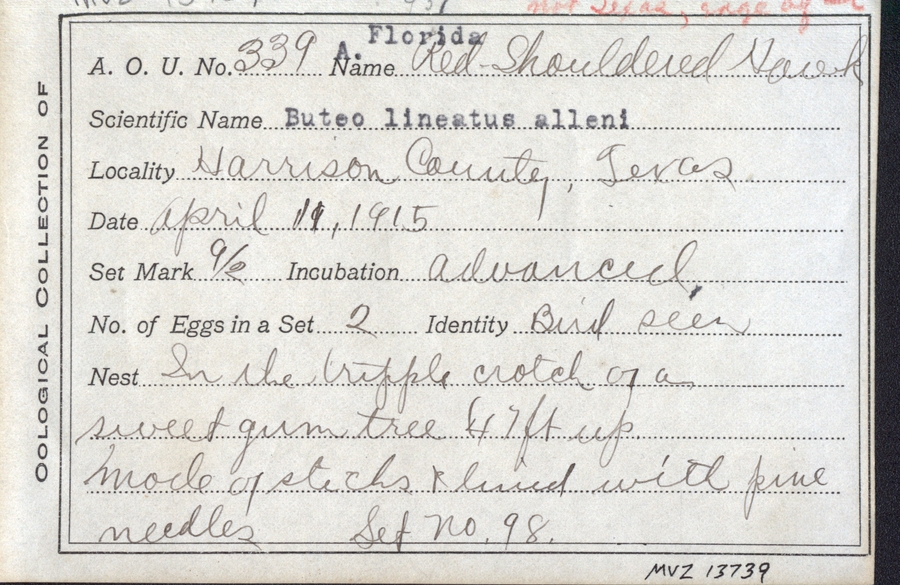 not Texas, edge of
Florida
A. O. U. No. 339 A. Name Red-Shouldered Hawk
Scientific Name Buteo lineatus alleni
Locality Harrison County, Texas
Date April 11, 1915
Set Mark 9/2 Incubation advanced,
No. of Eggs in a Set 2 Identity Bird seen
Nest In the tripple crotch of a
sweet gum tree 47 ft up.
Made of sticks & lined with pine
needles Set No. 98.
OOLOGICAL COLLECTION OF
MVZ 13739